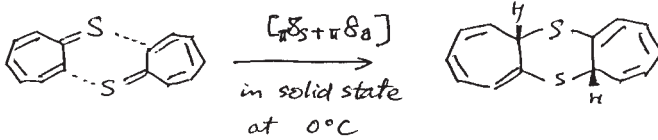 S
S
[π8s+π8a]
in solid state
at 0°C
H
S
S
H